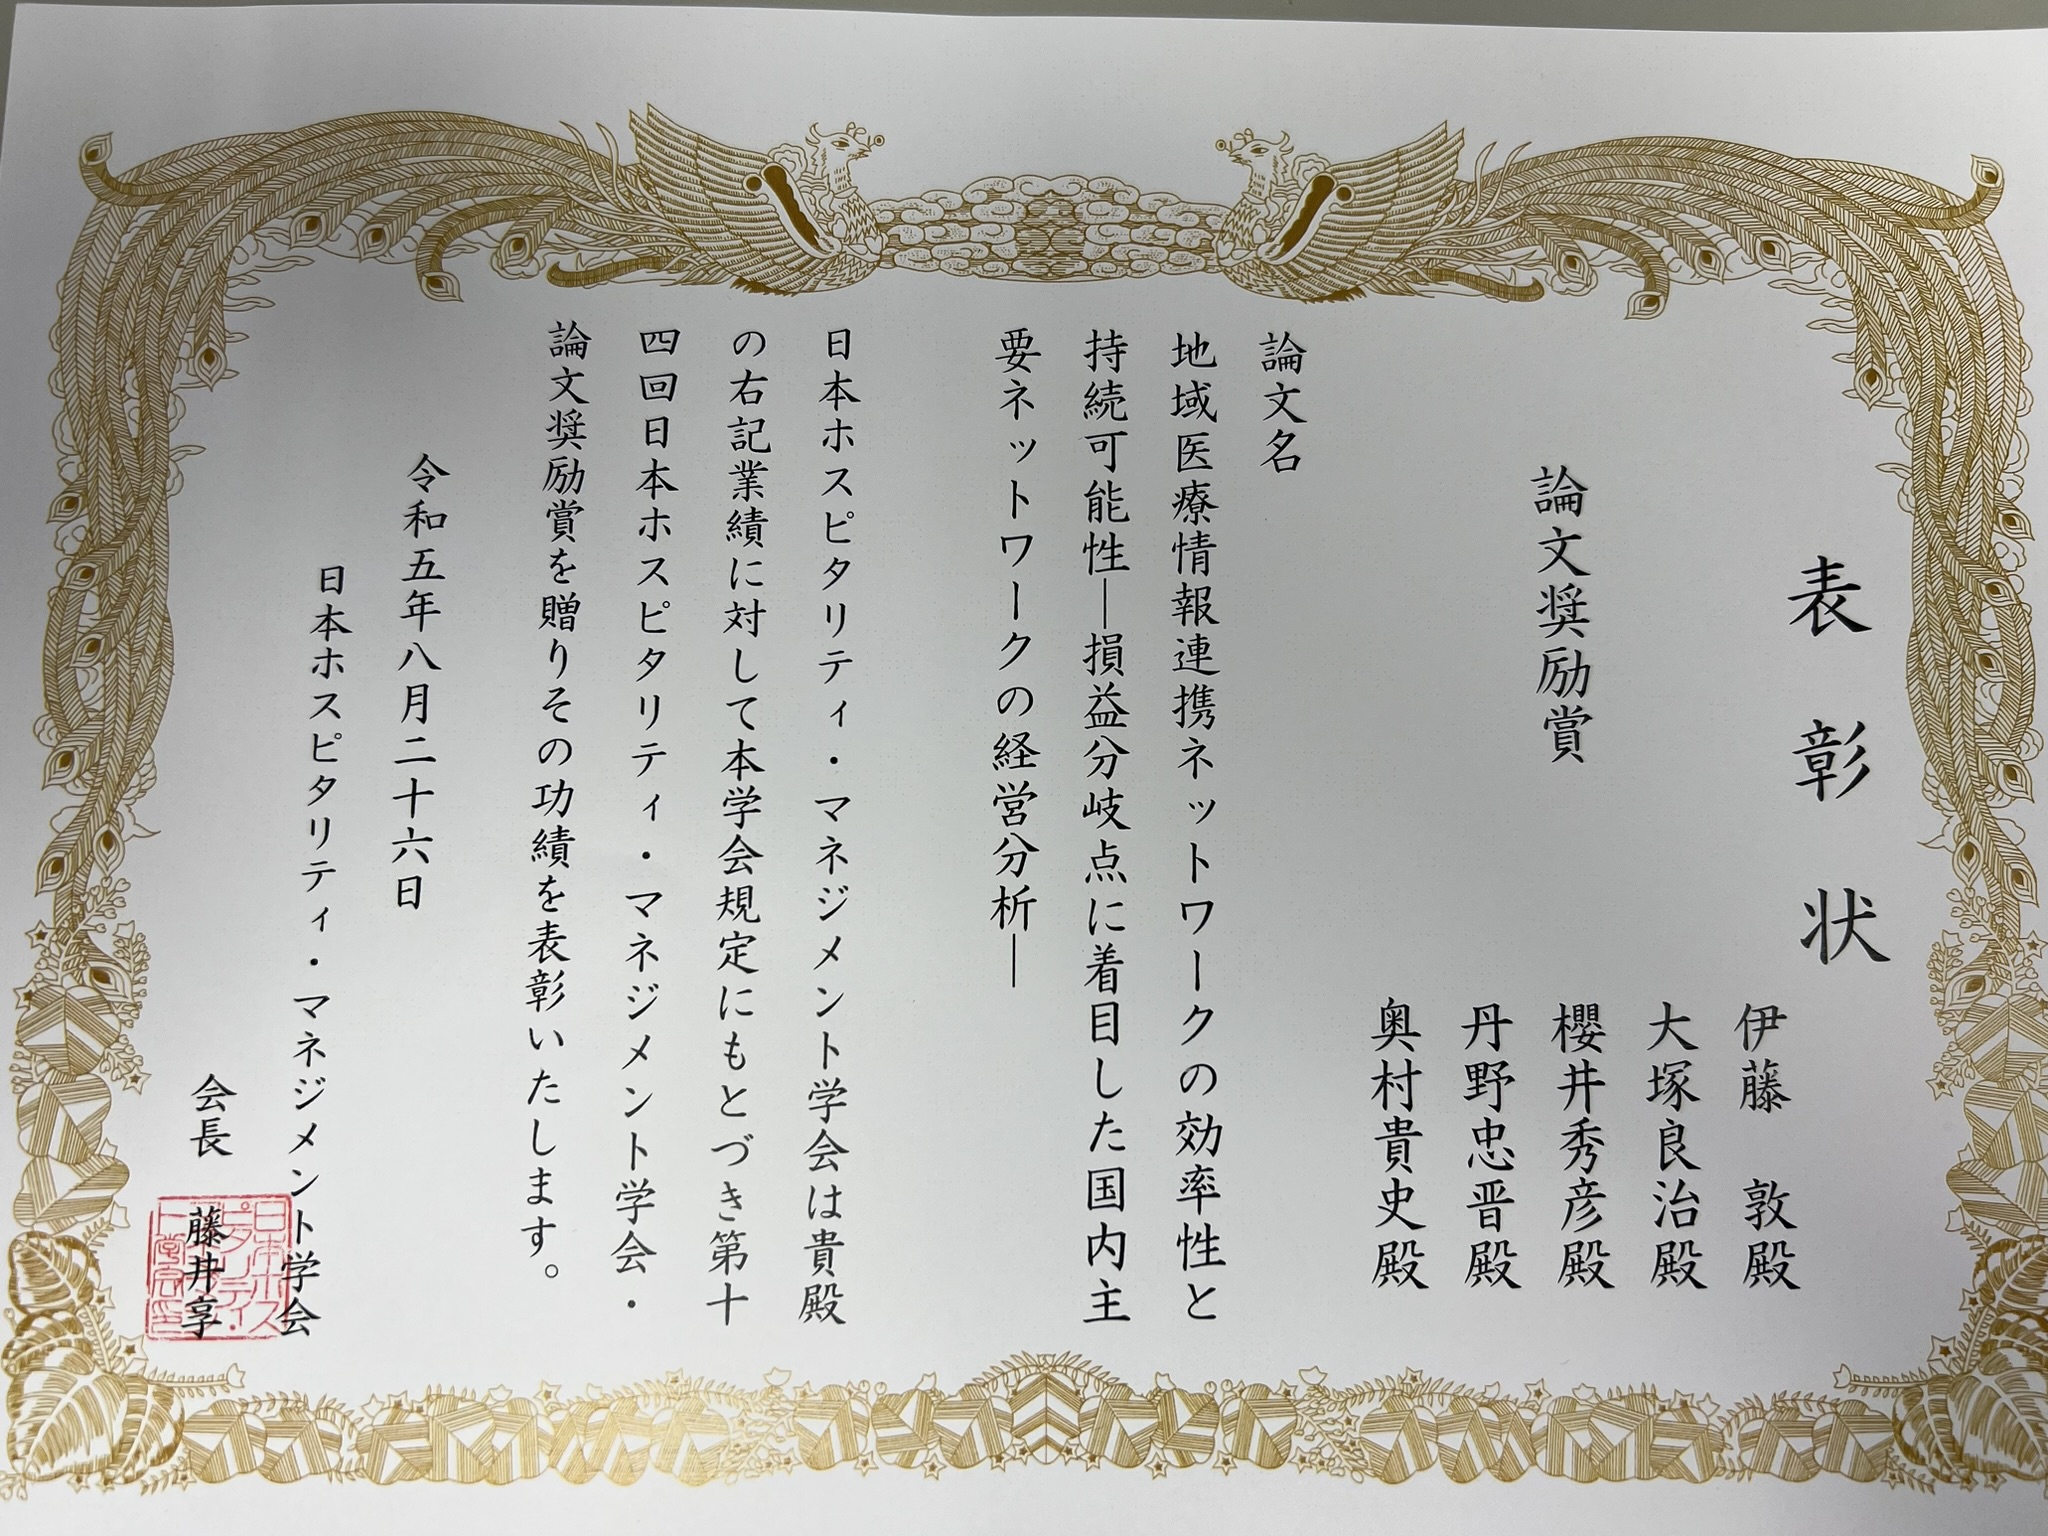 表彰状
伊藤 敦殿
大塚良治殿
櫻井秀彦殿
丹野忠晋殿
奥村貴史殿
論文奨励賞
論文名
地域医療情報連携ネットワークの効率性と
持続可能性―損益分岐点に着目した国内主
要ネットワークの経営分析―
日本ホスピタリティ・マネジメント学会は貴殿
の右記業績に対して本学会規定にもとづき第十
四回日本ホスピタリティ・マネジメント学会・
論文奨励賞を贈りその功績を表彰いたします。
令和五年八月二十六日
日本ホスピタリティ・マネジメント学会
会長 藤井享